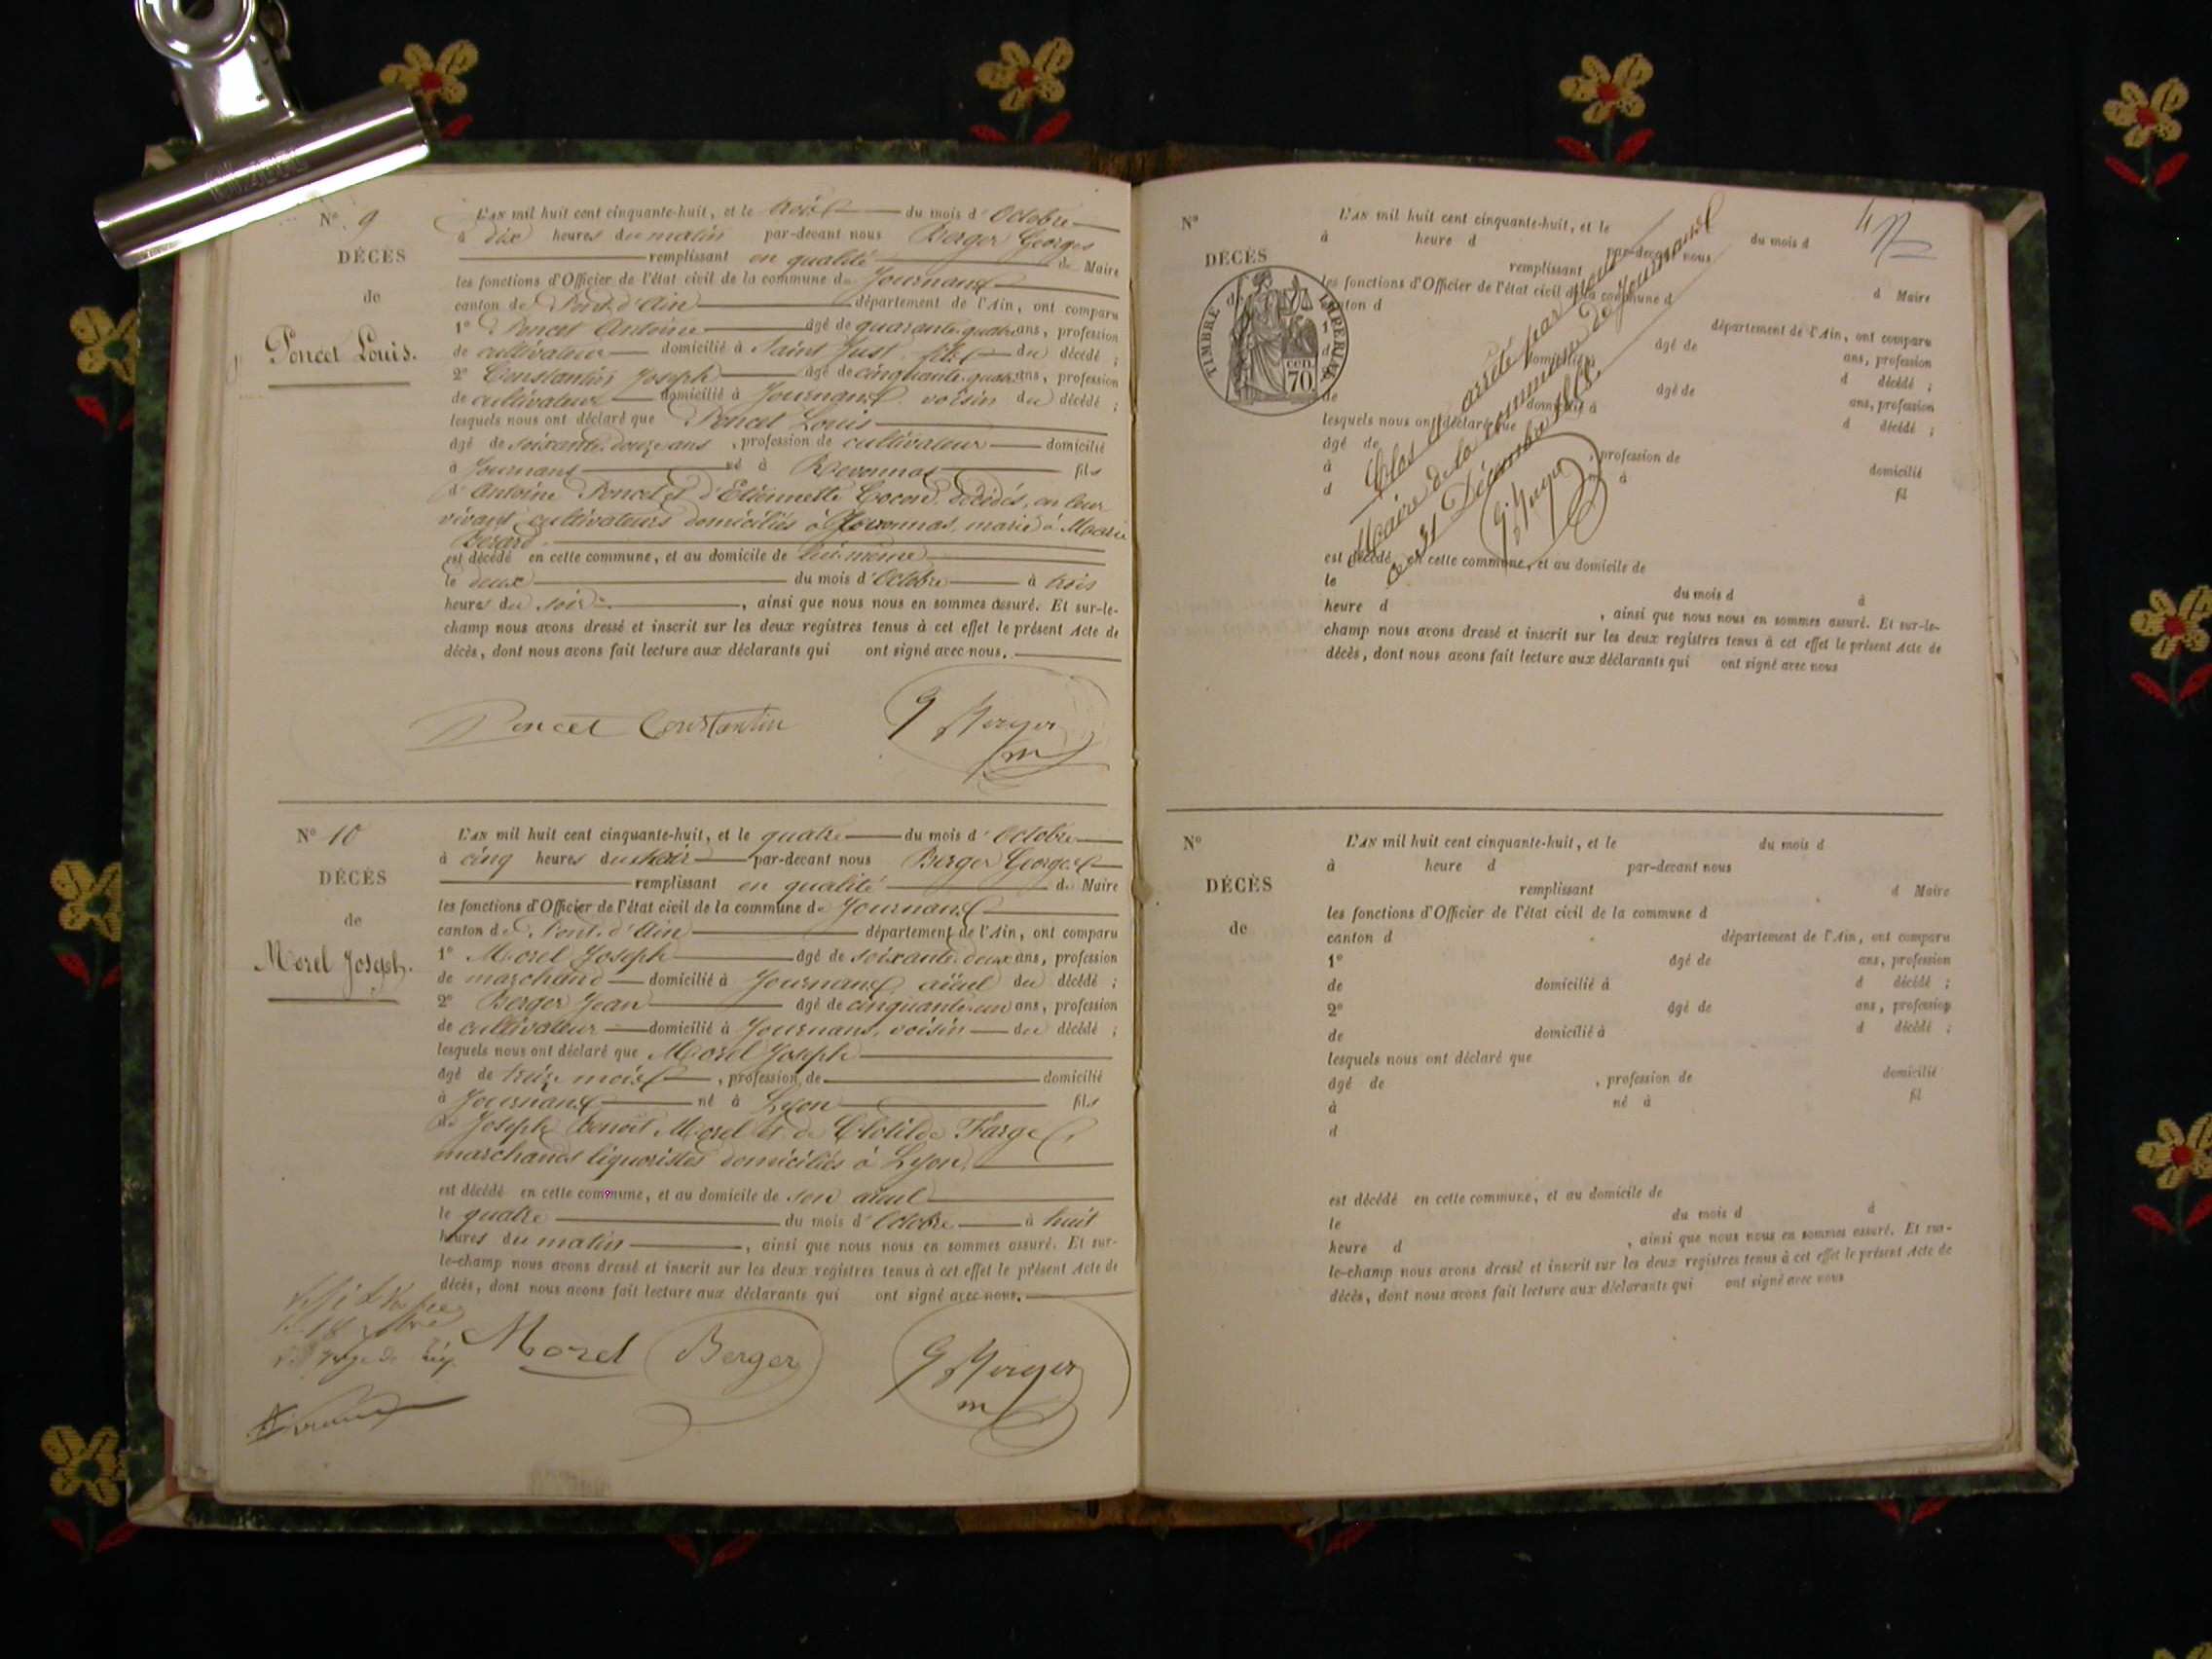 N° 9
DÉCÈS
de
Poncet Louis.
L'AN mil huit cent cinquante-huit, et le trois du mois d'Octobre
à dix heures du matin par-devant nous Berger Georges
remplissant en qualité de Maire
les fonctions d'Officier de l'état civil de la commune de Journans
canton de Pont-d'Ain département de l'Ain, ont comparu
1° Poncet Antoine âgé de quarante-quatre ans, profession
de cultivateur domicilié à Saint Just fils du décédé ;
2° Constantin Joseph âgé de cinquante-quatre ans, profession
de cultivateur domicilié à Journans voisin du décédé ;
lesquels nous ont déclaré que Poncet Louis
âgé de soixante-douze ans , profession de cultivateur domicilié
à Journans né à Revonnas fils
d'Antoine Poncet et d'Etiennette décédés, en leur
vivant cultivateurs domiciliés à Revonnas, marié à Marie
Bérard
est décédé en cette commune, et au domicile de lui-même
le deux du mois d'Octobre à trois
heures du soir , ainsi que nous nous en sommes assuré. Et sur-le-
champ nous avons dressé et inscrit sur les deux registres tenus à cet effet le présent Acte de
décès, dont nous avons fait lecture aux déclarants qui ont signé avec nous.
Poncet Constantin G Berger
m
N° 10
DÉCÈS
de
Morel Joseph.
L'AN mil huit cent cinquante-huit, et le quatre du mois d'Octobre
à cinq heures du soir par-devant nous Berger Georges
remplissant en qualité de Maire
les fonctions d'Officier de l'état civil de la commune de Journans
canton de Pont-d'Ain département de l'Ain, ont comparu
1° Morel Joseph âgé de soixante-deux ans, profession
de marchand domicilié à Journans aïeul du décédé ;
2° Berger Jean âgé de cinquante-un ans, profession
de cultivateur domicilié à Journans, voisin du décédé ;
lesquels nous ont déclaré que Morel Joseph
âgé de treize mois , profession de domicilié
à Journans né à Lyon fils
de Joseph Benoit Morel et de Clotilde Farge
marchands liquoristes domiciliés à Lyon,
est décédé en cette commune, et au domicile de son aïeul
le quatre du mois d'Octobre à huit
heures du matin , ainsi que nous nous en sommes assuré. Et sur-
le-champ nous avons dressé et inscrit sur les deux registres tenus à cet effet le présent Acte de
décès, dont nous avons fait lecture aux déclarants qui ont signé avec nous.
Morel Berger G Berger
m
N°
DÉCÈS
de
TIMBRE IMPERIAL
70 cen
L'AN mil huit cent cinquante-huit, et le du mois d
à heure d par-devant nous
remplissant d Maire
les fonctions d'Officier de l'état civil de la commune d
canton d département de l'Ain, ont comparu
1° âgé de ans, profession
d domicilié à d décédé ;
âgé de ans, profession
de domicilié à d décédé ;
lesquels nous ont déclaré que
âgé de , profession de domicilié
à à fil
d
Clos et arrêté par nous
Maire de la commune de Journans
ce 31 Décembre 1858.
G. Berger
est décédé en cette commune, et au domicile de
le du mois d à
heure d , ainsi que nous nous en sommes assuré. Et sur-le-
champ nous avons dressé et inscrit sur les deux registres tenus à cet effet le présent Acte de
décès, dont nous avons fait lecture aux déclarants qui ont signé avec nous
N°
DÉCÈS
de
L'AN mil huit cent cinquante-huit, et le du mois d
à heure d par-devant nous
remplissant d Maire
les fonctions d'Officier de l'état civil de la commune d
canton d département de l'Ain, ont comparu
1° âgé de ans, profession
de domicilié à d décédé ;
2° âgé de ans, profession
de domicilié à d décédé ;
lesquels nous ont déclaré que
âgé de , profession de domicilié
à né à fil
d
est décédé en cette commune, et au domicile de
le du mois d à
heure d , ainsi que nous nous en sommes assuré. Et sur-
le-champ nous avons dressé et inscrit sur les deux registres tenus à cet effet le présent Acte de
décès, dont nous avons fait lecture aux déclarants qui ont signé avec nous